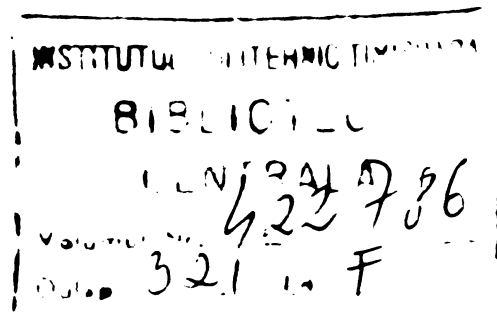 INSTITUTUL POLITEHNIC TIMIȘOARA
BIBLIOTECA
CENTRALĂ
Volumul Nr. 422 786
Dulap 321 F